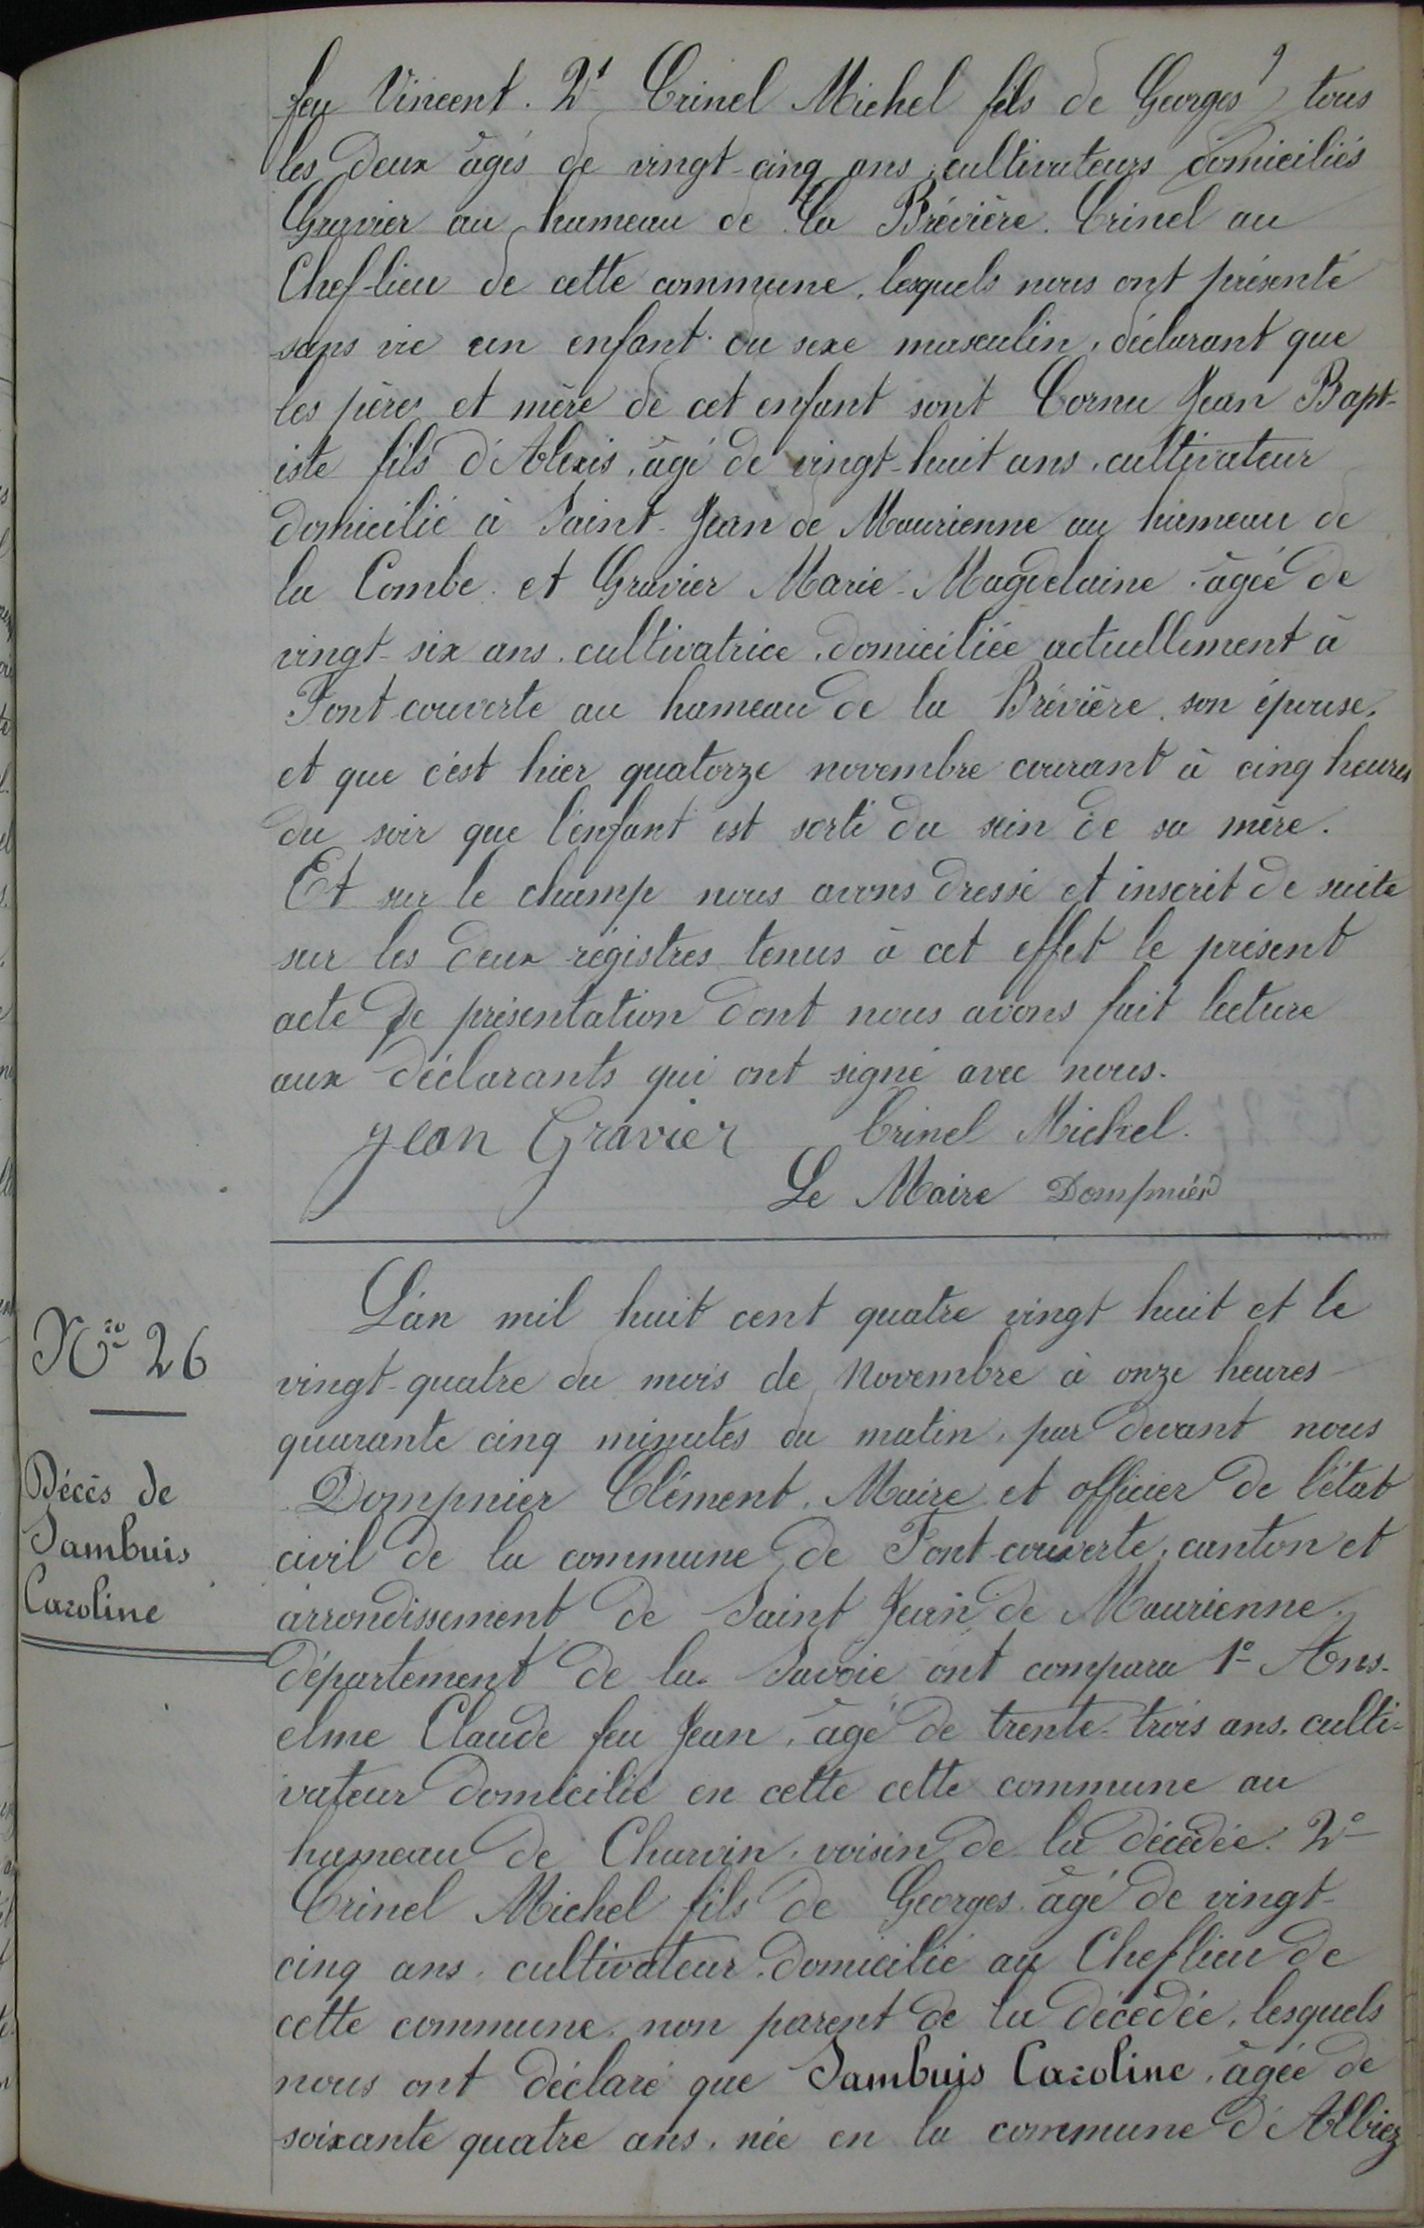 feu Vincent. 2° Crinel Michel fils de Georges, tous
les deux âgés de vingt-cinq ans, cultivateurs domiciliés
Gravier au hameau de la Brévière. Crinel au
Chef-lieu de cette commune, lesquels nous ont présenté
sans vie un enfant du sexe masculin, déclarant que
les père et mère de cet enfant sont Cornu Jean Bapt-
iste fils d'Alexis, âgé de vingt-huit ans, cultivateur
domicilié à Saint-Jean de Maurienne au hameau de
la Combe. et Gravier Marie-Magdelaine, âgée de
vingt-six ans, cultivatrice, domiciliée actuellement à
Font-couverte au hameau de la Brévière, son épouse,
et que c'est hier quatorze novembre courant à cinq heures
du soir que l'enfant est sorti du sein de sa mère.
Et sur le champ nous avons dressé et inscrit de suite
sur les deux régistres tenus à cet effet le présent
acte de présentation dont nous avons fait lecture
aux déclarants qui ont signé avec nous.
Jean Gravier Crinel Michel.
Le Maire Dompnier
N° 26
Décès de
Sambuis
Caroline
L'an mil huit cent quatre vingt huit et le
vingt-quatre du mois de Novembre à onze heures
quarante cinq minutes du matin, par devant nous
Dompnier Clément, Maire et officier de l'état
civil de la commune de Font-couverte, canton et
arrondissement de Saint Jean de Maurienne,
département de la Savoie ont comparu 1° Ans-
elme Claude feu Jean, âgé de trente-trois ans, culti-
vateur domicilié en cette cette commune au
hameau de Charvin, voisin de la décédée. 2°
Crinel Michel fils de Georges âgé de vingt-
cinq ans, cultivateur domicilié au Chef lieu de
cette commune, non parent de la décédée, lesquels
nous ont déclaré que Sambuis Caroline, âgée de
soixante quatre ans, née en la commune d'Albiez